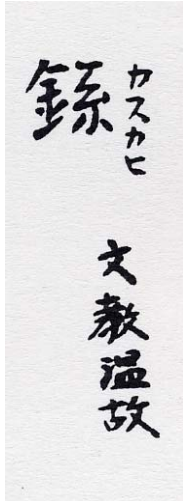 カスカヒ
文教温故